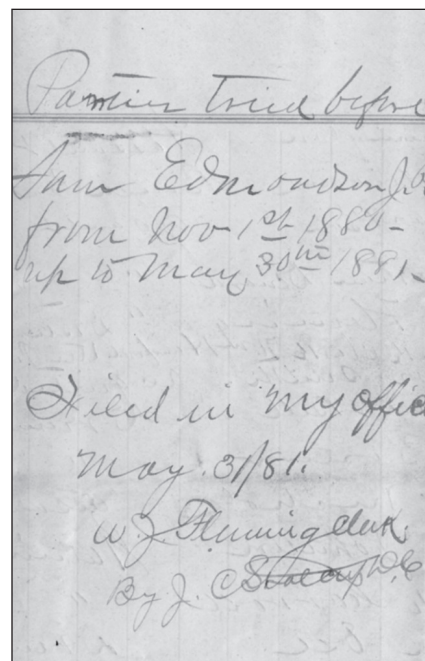 Parties tried before
Sam Edmondson J.
from Nov 1st 1880 -
up to May 30th 1881 -
Filed in my offic
May. 31/81.
W. J. Fleming Clerk.
By J. C. D.C